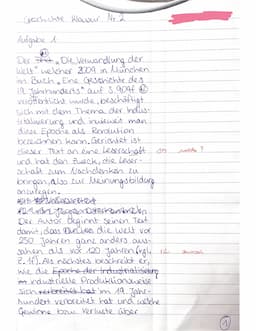 Geschichte Klausur Nr. 2
Aufgabe 1
Der Text „Die Verwandlung der
Welt" welcher 2009 in München
im Buch „Eine Geschichte des
19. Jahrhunderts" auf S. 909f
veröffentlicht wurde, beschäftigt
sich mit dem Thema der Indus-
trialisierung und inwieweit man
diese Epoche als Revolution
bezeichnen kann. Gerichtet ist
dieser Text an eine Leserschaft
und hat den Zweck, die Leser-
schaft zum Nachdenken zu
bringen, also zur Meinungsbildung
anzuregen.
Der Autor beginnt seinen Text
damit, dass die Welt vor
250 Jahren ganz anders aus-
sah als vor 120 Jahren (vgl.
Z. 1f). Als nächstes beschreibt er,
wie die Epoche der Industrialisierung
industrielle Produktionsweise
sich verbreitet hat im 19. Jahr-
hundert verbreitet hat und welche
Gewinne bzw. Verluste über
1